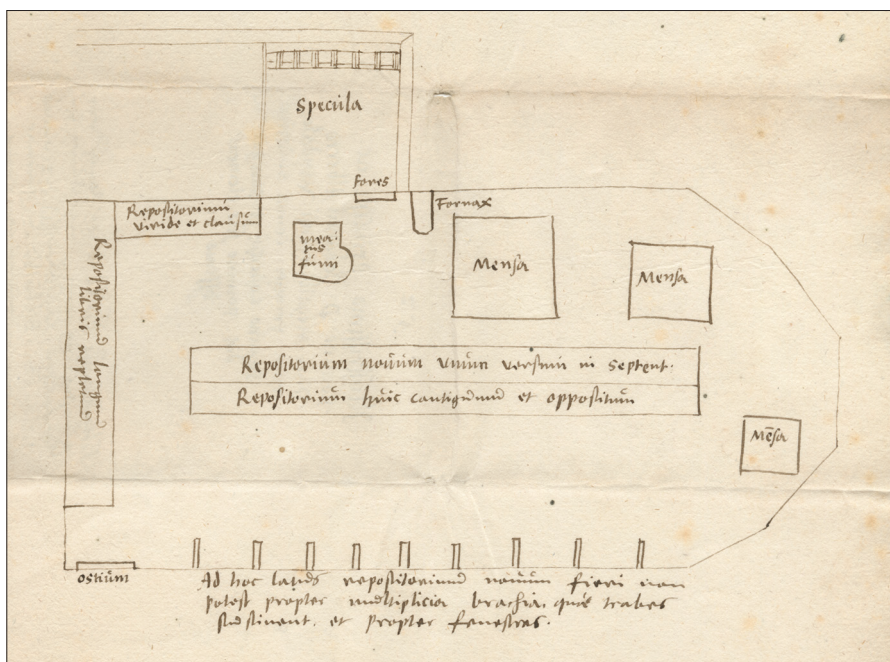 Specula
fores
Fornax
Repositorium
viride et clausum
mea-
tus
fumi
Mensa
Mensa
Repositorium longum
libris repletum
Repositorium novum unum versum in septent.
Repositorium huic contiguum et oppositum
Mēsa
ostium
Ad hoc latus repositorium novum fieri non
potest propter multiplicia brachia, que trabes
sustinent, et propter fenestras.